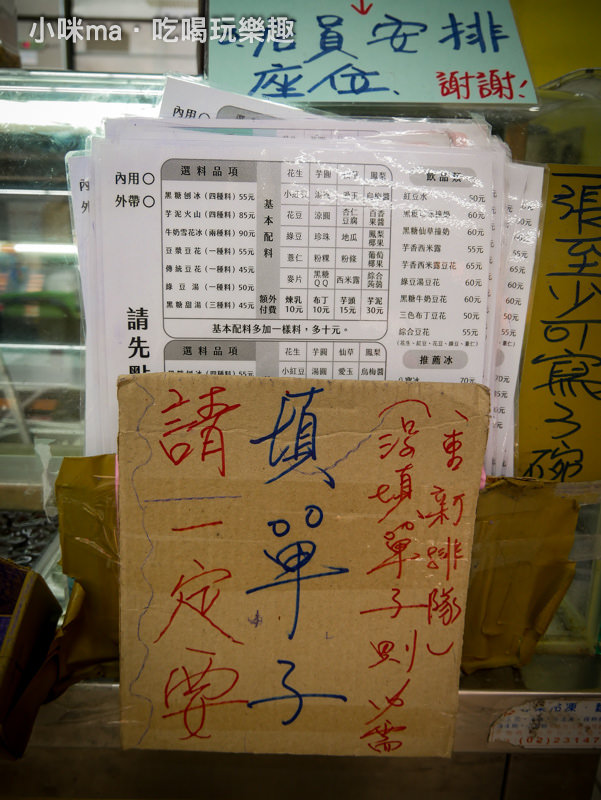 小咪ma · 吃喝玩樂趣
店員安排
座位、謝謝！
內用
內用○
外帶○
請先點
選料品項
黑糖刨冰（四種料）55元
芋泥火山（四種料）85元
牛奶雪花冰（兩種料）90元
豆漿豆花（一種料）55元
傳統豆花（一種料）45元
綠豆湯（一種料）50元
黑糖甜湯（三種料）45元
基本配料
花生 芋圓 仙草 鳳梨
小紅豆 湯圓 愛玉 烏梅醬
花豆 涼圓 杏仁豆腐 百香果醬
綠豆 珍珠 地瓜 鳳梨椰果
薏仁 粉粿 粉條 葡萄椰果
麥片 黑糖QQ 西米露 綜合蒟蒻
額外付費
煉乳10元 布丁10元 芋頭15元 芋泥30元
基本配料多加一樣料，多十元。
飲品類
紅豆水 50元
60元
黑糖仙草撞奶 60元
芋香西米露 55元
芋香西米露豆花 65元
綠豆湯豆花 60元
黑糖牛奶豆花 60元
三色布丁豆花 50元
綜合豆花 55元
（花生、紅豆、花豆、綠豆、薏仁）
推薦冰
八寶冰 70元
選料品項
花生 芋圓 仙草 鳳梨
小紅豆 湯圓 愛玉 烏梅醬
黑糖刨冰（四種料）55元
一張至少可寫3碗
請一定要
填單子
（沒填單子則必需
重新排隊）
(02)23147